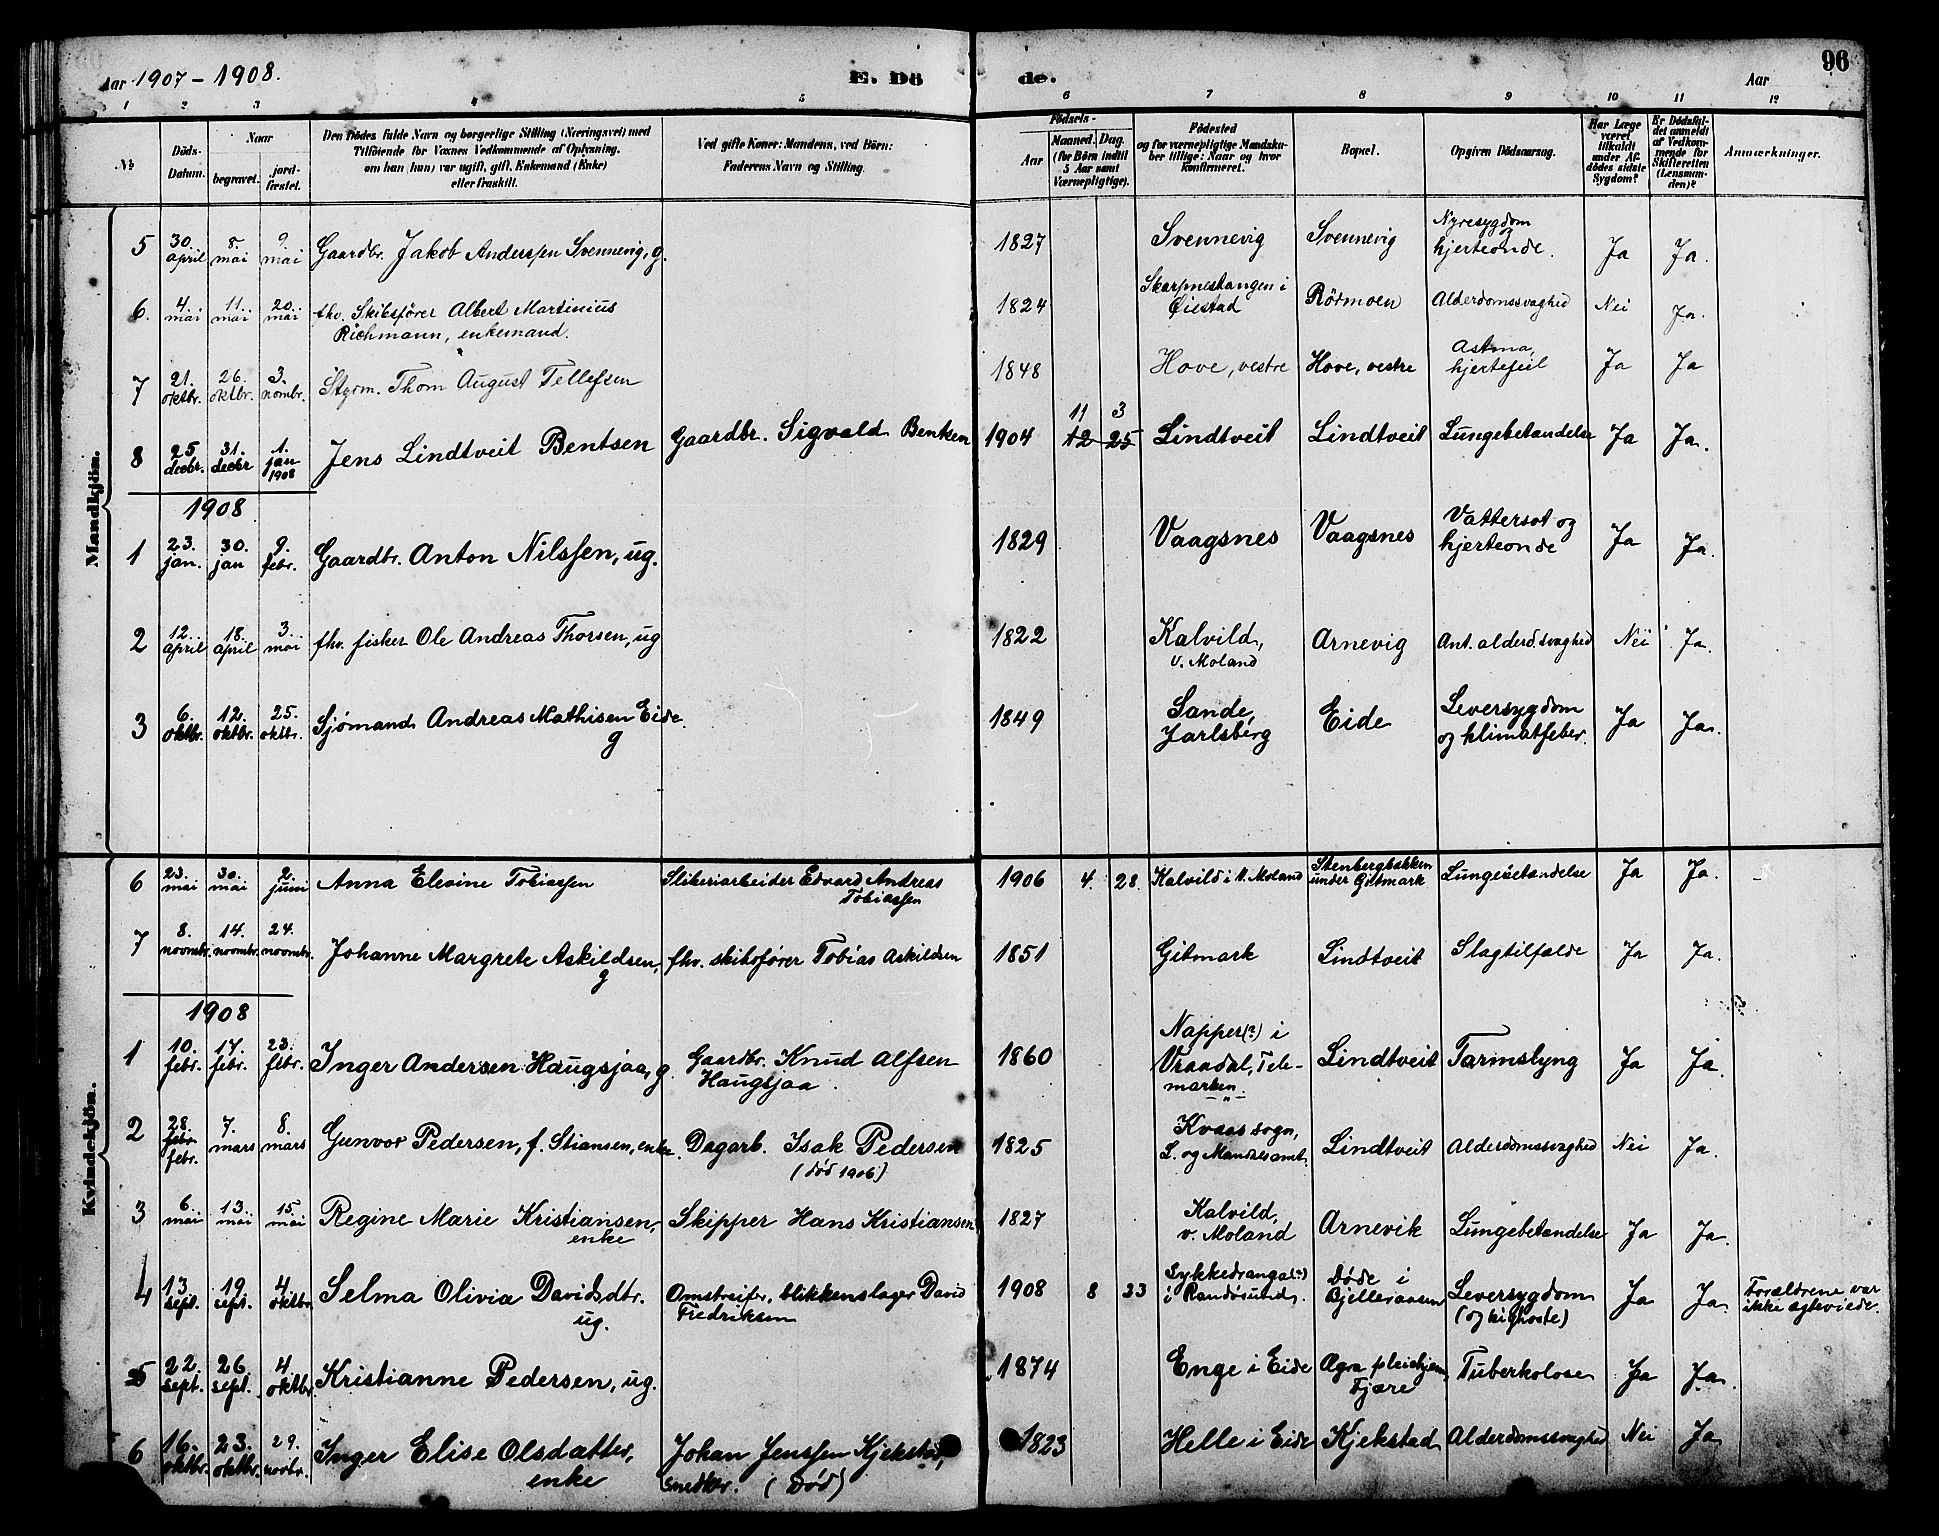 Aar 1907 - 1908.
E. Dö
de.
Aar
96
1 2 3 4 5 6 7 8 9 10 11 12
№
Döds-
Datum.
Naar
begravet.
jord-
fæstet.
Den Dödes fulde Navn og borgerlige Stilling (Næringsvei) med
Tilföiende for Voxnes Vedkommende af Oplysning,
om han (hun) var ugift, gift, Enkemand (Enke)
eller fraskilt.
Ved gifte Koner: Mandens, ved Börn:
Faderens Navn og Stilling.
Födsels-
Aar
Maaned. Dag.
(for Börn indtil
5 Aar samt
Værnepligtige).
Födested
og for værnepligtige Mandska-
ber tillige: Naar og hvor
konfirmeret.
Bopæl.
Opgiven Dödsaarsag.
Har Læge
været
tilkaldt
under Af-
dödes sidste
Sygdom?
Er Dödsfal-
det anmeldt
af Vedkom-
mende for
Skifteretten
(Lensman-
den)?
Anmærkninger.
Mandkjön.
5 30. april 8. mai 9. mai Gaardbr. Jakob Anderssen Svennevig, g. 1827 Svennevig Svennevig Nyresygdom og hjerteonde. Ja Ja.
6. 4. mai 11. mai 20. mai fhv. Skibsfører Albert Martinius 1824 Skarpnestangen i Øiestad Rödmoen Alderdomssvaghed Nei Ja.
Richmann, enkemand.
7 21. oktbr. 26. oktbr. 3. novmbr. Styrm. Thom August Tellefsen 1848 Hove, vestre Hove, vestre Astma, hjertefeil Ja Ja
8 25. decbr. 31. decbr 1. jan 1908 Jens Lindtveit Bentsen Gaardbr. Sigvald Bentsen 1904 11 3 12 25 Lindtveit Lindtveit Lungebetændelse Ja Ja.
1908
1 23. jan. 30. jan 9. febr. Gaardbr. Anton Nilssen, ug. 1829 Vaagsnes Vaagsnes Vattersot og hjerteonde Ja Ja.
2 12. april 18. april 3. mai fhv. fisker Ole Andreas Thorsen, ug 1822 Kalvild, v. Moland Arnevig Ant. alderd.svaghed Nei Ja.
3 6. oktbr. 12. oktbr. 25. oktbr. Sjømand Andreas Mathisen Eide g 1849 Sande, Jarlsberg Eide Leversygdom og klimatfeber. Ja Ja.
Kvindekjön.
6 23. mai 30. mai 2. juni Anna Elevine Tobiassen Slikeriarbeider Edvard Andreas Tobiassen 1906 4. 28. Kalvild i V. Moland Stenbergbakken under Gitmark Lungebetændelse Ja Ja.
7 8. novmbr. 14. novmbr. 24. novmbr. Johanne Margrete Askildsen, g fhv. skibsfører Tobias Askildsen 1851 Gitmark Lindtveit Slagtilfælde Ja Ja.
1908
1 10. febr. 17. febr. 23. febr. Inger Andersen Haugsjaa, g. Gaardbr. Knud Alfsen Haugsjaa. 1860 Napper(?) i Vraadal, Tele-marken Lindtveit Tarmslyng Ja Ja.
2 28. febr febr. 7. mars 8. mars Gunvor Pedersen, f. Stiansen, enke. Dagarb. Isak Pedersen (død 1906) 1825 Kvaas sogn, L. og Mandalsamt. Lindtveit Alderdomssvaghed Nei Ja.
3 6. mai 13. mai 15. mai Regine Marie Kristiansen, enke Skipper Hans Kristiansen 1827 Kalvild, v. Moland Arnevik Lungebetændelse Ja Ja.
4 13. sept. 19. sept. 4. oktbr. Selma Olivia Davidsdtr. ug. Omstreifer, blikkenslager David Fredriksen 1908 8 23 i Randøsund. Døde i Bjelleraasen Leversygdom (og kighoste) Ja Ja. Forældrene var ikke egteviede.
5 22. sept. 26. sept. 4. oktbr. Kristianne Pedersen, ug. 1874 Enge i Eide Øgra pleiehjem, Fjære Tuberkolose Ja Ja.
6 16. oktbr. 23. oktbr. 29. novbr. Inger Elise Olsdatter, enke Johan Jenssen Kjekstad, snedker. (Død) 1823 Helle i Eide Kjekstad Alderdomssvaghed Nei Ja